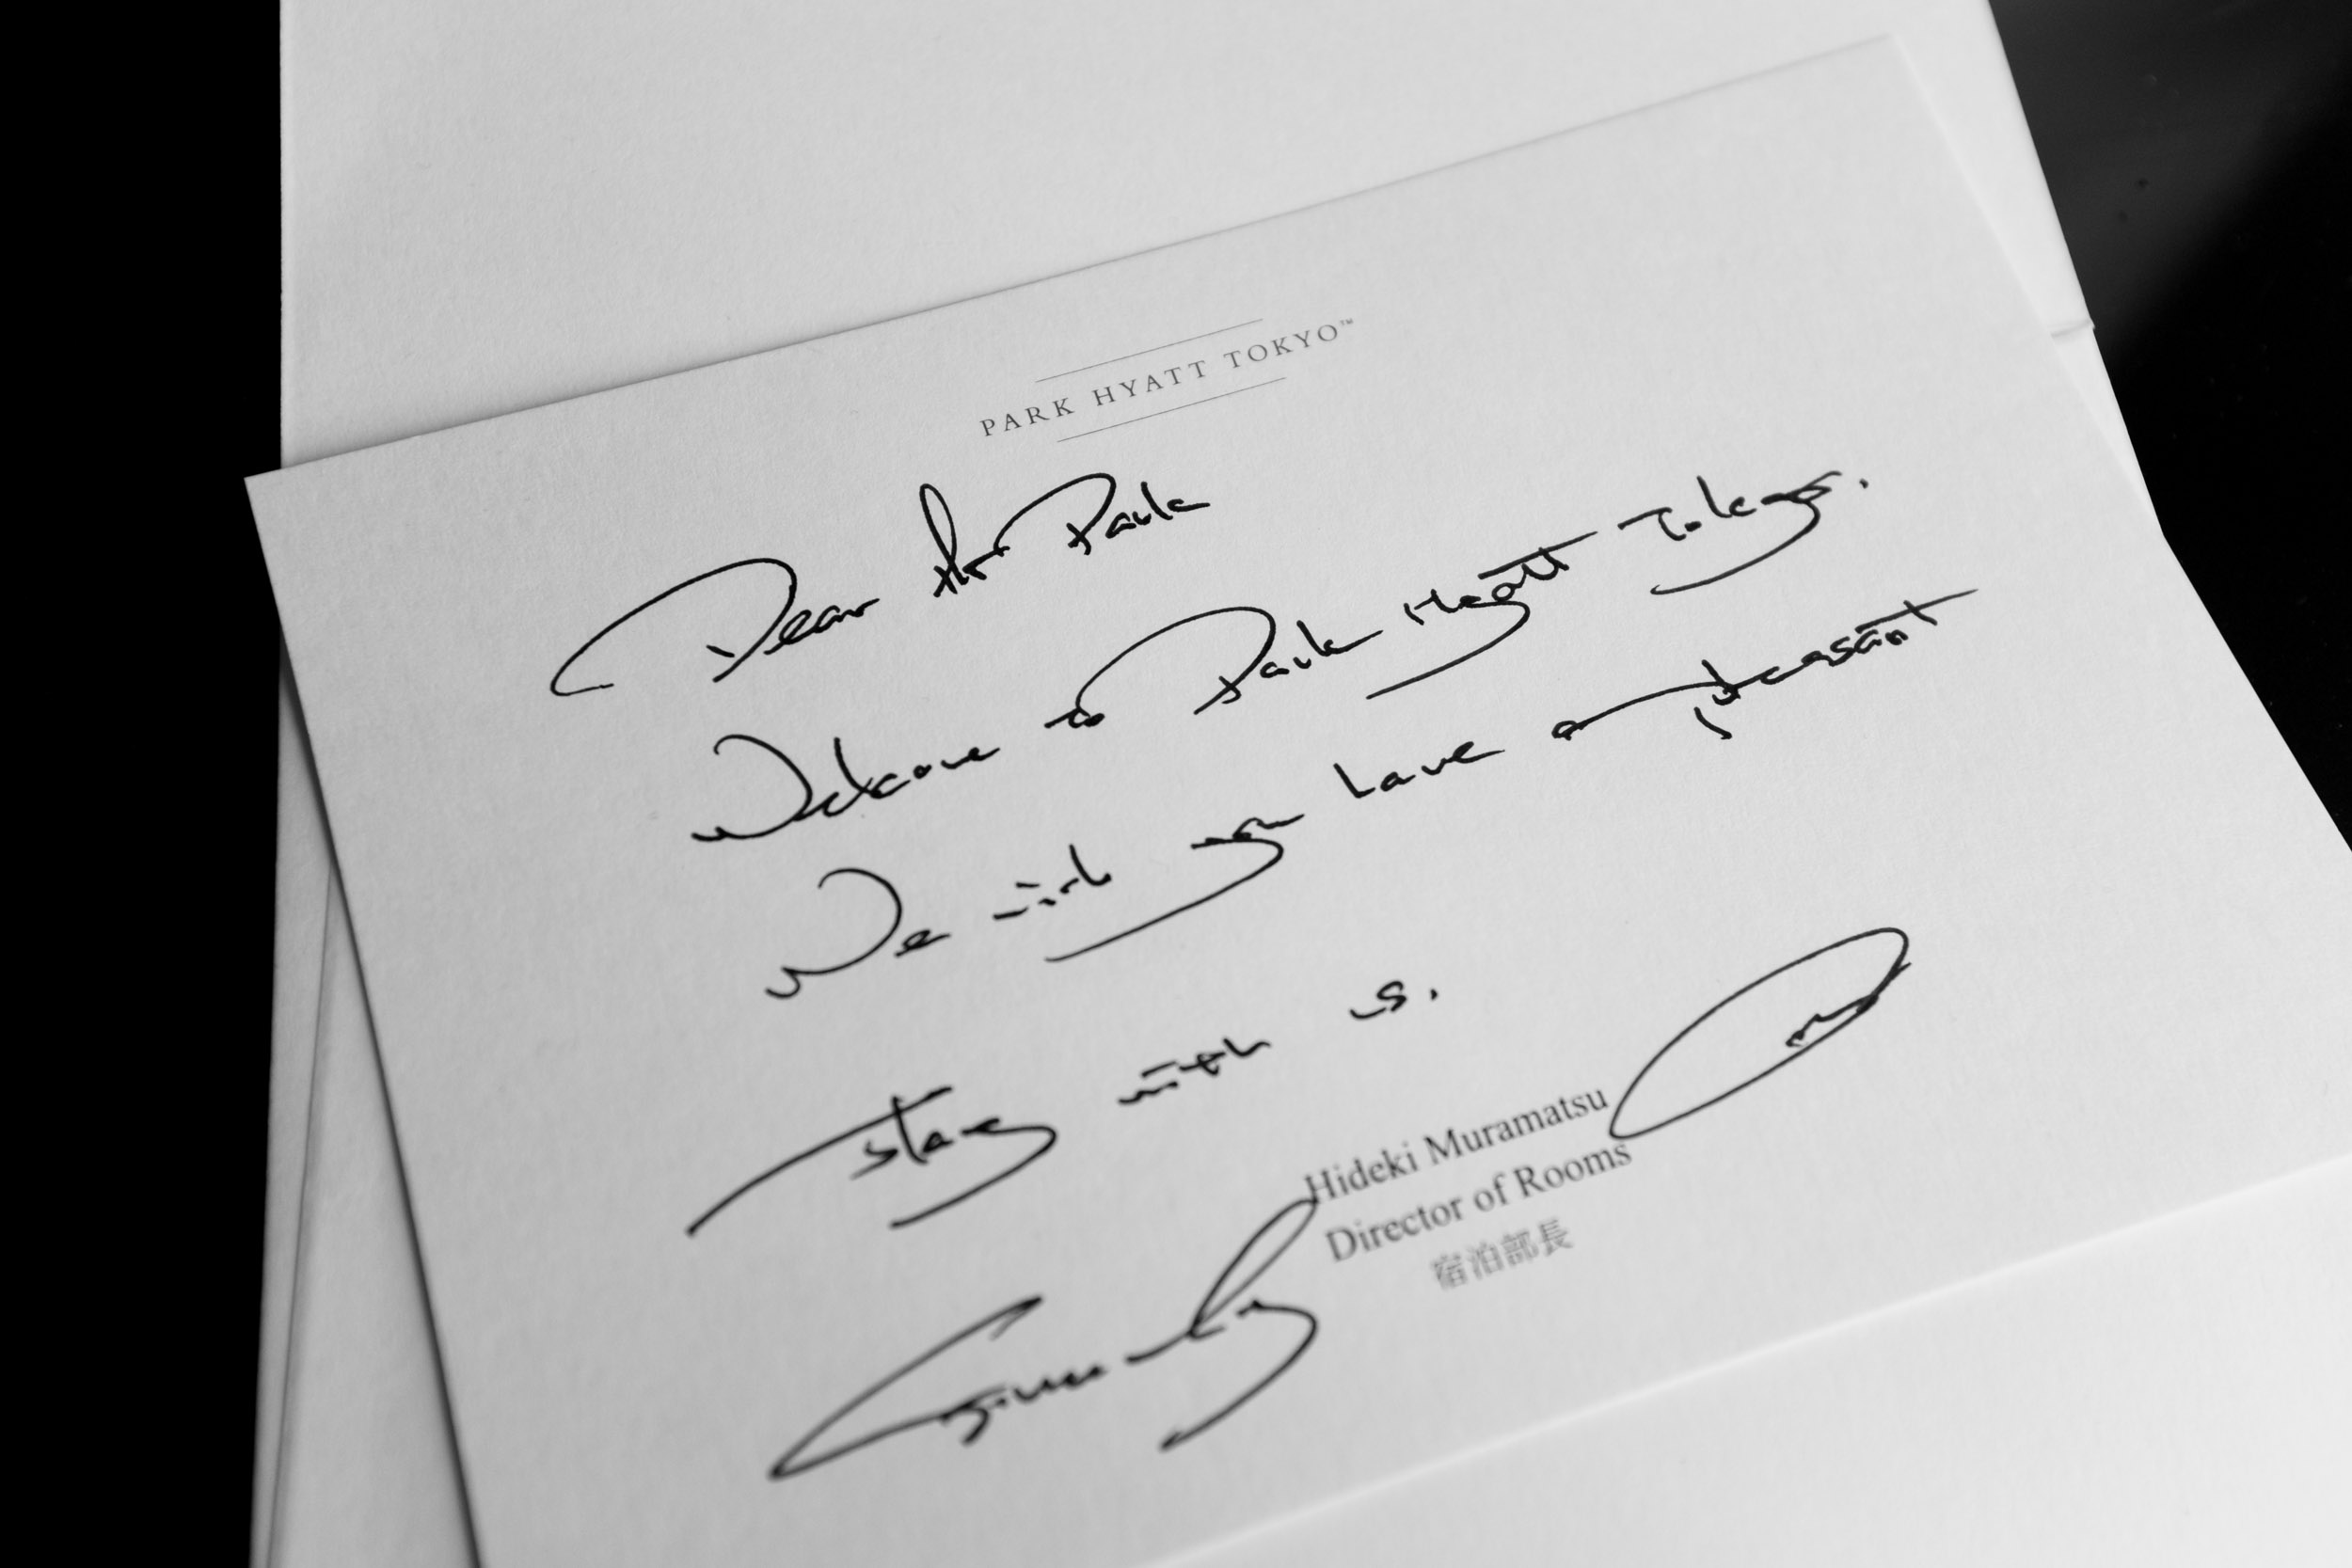 PARK HYATT TOKYO™
Dear Mr Park
Welcome to Park Hyatt Tokyo.
We wish you have a pleasant
stay with us.
Hideki Muramatsu
Director of Rooms
宿泊部長
Sincerely